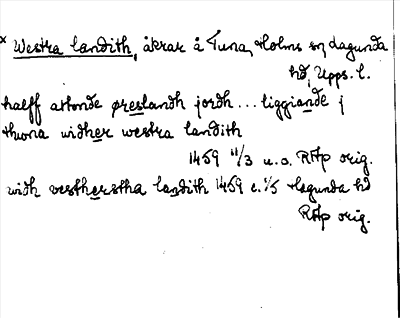 × Westra landith, åkrar å Tuna, Holms sn, Lagunda
hd, Upps. l.
halff attonde øreslandh jordh... liggiande j
thwna widher westra landith
1459 11/3 u.o. RAp orig.
widh vestherstha landith 1459 e. 1/5 Hagunda hd
RAp orig.